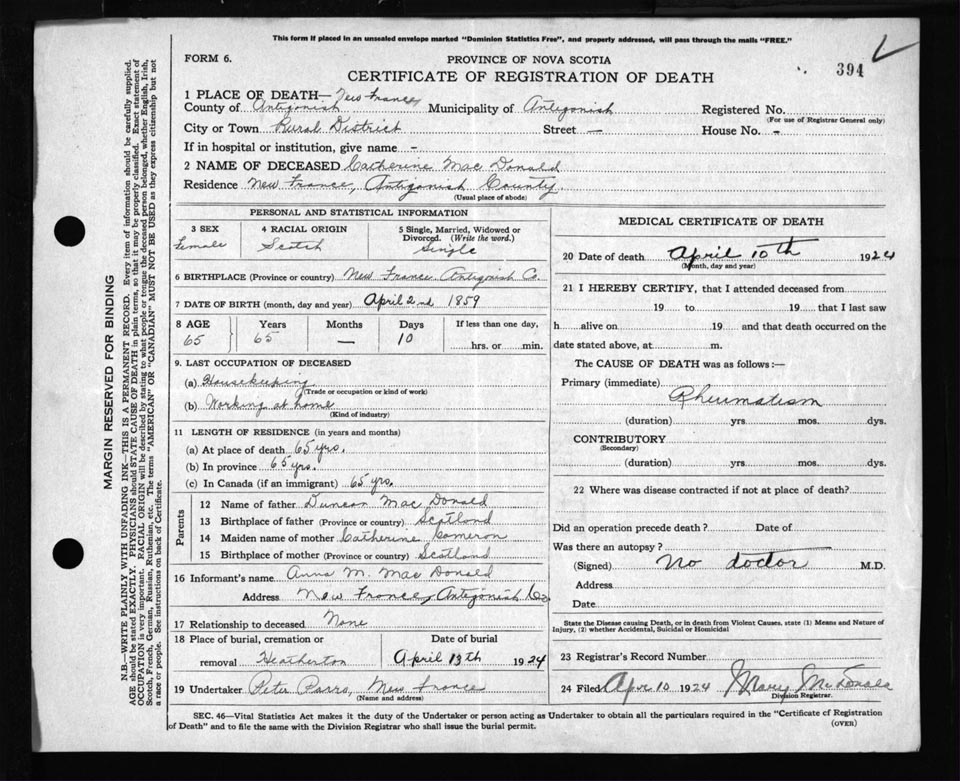 This form if placed in an unsealed envelope marked "Dominion Statistics Free", and properly addressed, will pass through the mails "FREE."
FORM 6.
PROVINCE OF NOVA SCOTIA
CERTIFICATE OF REGISTRATION OF DEATH
394
1 PLACE OF DEATH— New France
County of Antigonish Municipality of Antigonish Registered No.
(For use of Registrar General only)
City or Town Rural District Street — House No. -
If in hospital or institution, give name -
2 NAME OF DECEASED Catherine Mac Donald
Residence New France, Antigonish County.
(Usual place of abode)
PERSONAL AND STATISTICAL INFORMATION
3 SEX 4 RACIAL ORIGIN 5 Single, Married, Widowed or Divorced. (Write the word.)
Female Scotch Single
6 BIRTHPLACE (Province or country) New France Antigonish Co.
7 DATE OF BIRTH (month, day and year) April 2nd 1859
8 AGE Years Months Days If less than one day,
65 65 — 10 hrs. or min.
9. LAST OCCUPATION OF DECEASED
(a) Housekeeping
(Trade or occupation or kind of work)
(b) Working at home
(Kind of industry)
11 LENGTH OF RESIDENCE (in years and months)
(a) At place of death 65 yrs.
(b) In province 65 yrs.
(c) In Canada (if an immigrant) 65 yrs.
Parents
12 Name of father Duncan Mac Donald
13 Birthplace of father (Province or country) Scotland
14 Maiden name of mother Catherine Cameron
15 Birthplace of mother (Province or country) Scotland
16 Informant's name Anna M. Mac Donald
Address New France, Antigonish Co
17 Relationship to deceased None
18 Place of burial, cremation or Date of burial
removal Heatherton April 13th 1924
19 Undertaker Peter New France
(Name and address)
MEDICAL CERTIFICATE OF DEATH
20 Date of death April 10th 1924
(Month, day and year)
21 I HEREBY CERTIFY, that I attended deceased from
19 to 19 that I last saw
h alive on 19 and that death occurred on the
date stated above, at m.
The CAUSE OF DEATH was as follows:—
Primary (immediate)
Rheumatism
(duration) yrs mos. dys.
CONTRIBUTORY
(Secondary)
(duration) yrs mos. dys.
22 Where was disease contracted if not at place of death?
Did an operation precede death? Date of
Was there an autopsy?
(Signed) No doctor M.D.
Address
Date
State the Disease causing Death, or in death from Violent Causes, state (1) Means and Nature of
Injury, (2) whether Accidental, Suicidal or Homicidal
23 Registrar's Record Number
24 Filed Apr 10 1924 Mary McDonald
Division Registrar.
SEC. 46—Vital Statistics Act makes it the duty of the Undertaker or person acting as Undertaker to obtain all the particulars required in the "Certificate of Registration
of Death" and to file the same with the Division Registrar who shall issue the burial permit.
(OVER)
MARGIN RESERVED FOR BINDING
N.B.—WRITE PLAINLY WITH UNFADING INK—THIS IS A PERMANENT RECORD. Every item of information should be carefully supplied.
AGE should be stated EXACTLY. PHYSICIANS should STATE CAUSE OF DEATH in plain terms, so that it may be properly classified. Exact statement of
OCCUPATION is very important. RACIAL ORIGIN will be described by stating to what people or tongue the deceased person belonged, whether English, Irish,
Scotch, French, German, Russian, Ruthenian, etc. The terms "AMERICAN" OR "CANADIAN" MUST NOT BE USED as they express citizenship but not
a race or people. See instructions on back of Certificate.